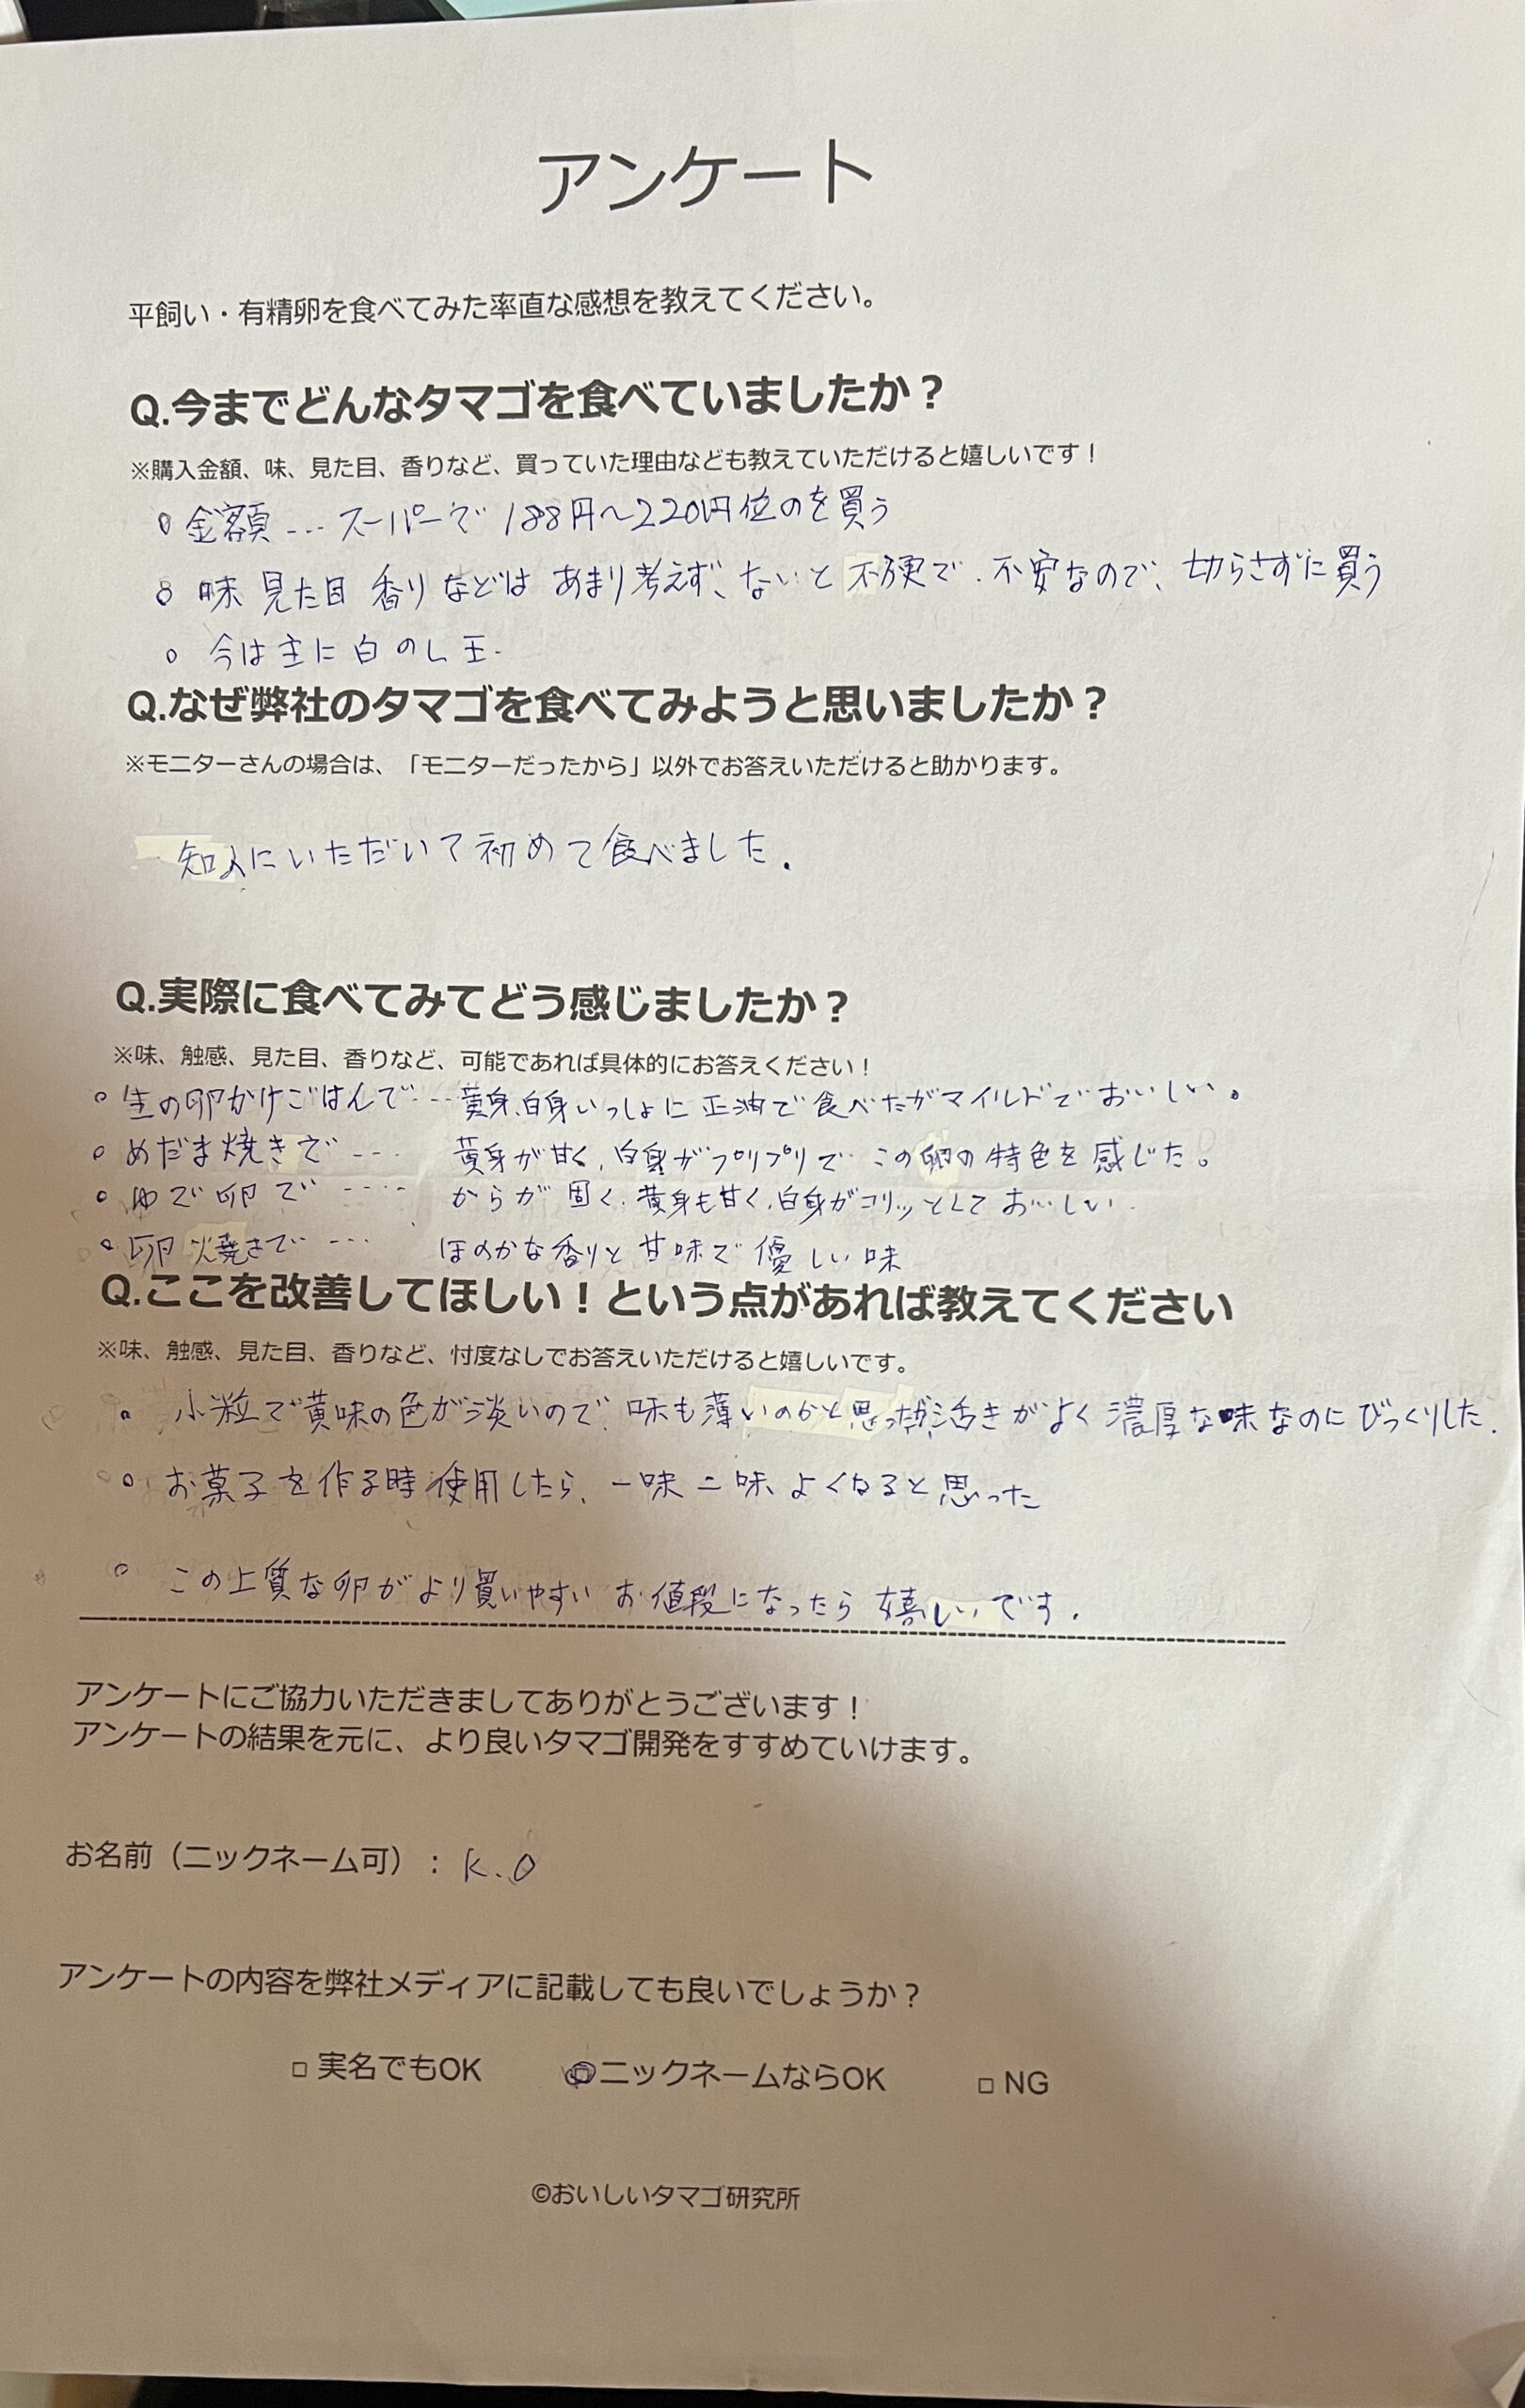 アンケート
平飼い・有精卵を食べてみた率直な感想を教えてください。
Q.今までどんなタマゴを食べていましたか？
※購入金額、味、見た目、香りなど、買っていた理由なども教えていただけると嬉しいです！
○ 金額 --- スーパーで 188円〜220円位のを買う
○ 味 見た目 香り などは あまり考えず、ないと 不便で、不安なので、切らさずに買う
○ 今は主に白のL玉.
Q.なぜ弊社のタマゴを食べてみようと思いましたか？
※モニターさんの場合は、「モニターだったから」以外でお答えいただけると助かります。
知人にいただいて初めて食べました.
Q.実際に食べてみてどう感じましたか？
※味、触感、見た目、香りなど、可能であれば具体的にお答えください！
○ 生の卵かけごはんで --- 黄身、白身いっしょに 正油で 食べたがマイルドでおいしい。
○ めだま焼きで --- 黄身が甘く、白身がプリプリで この卵の特色を感じた。
○ ゆで卵で ---- からが固く、黄身も甘く、白身がコリッとして おいしい
○ 卵焼きで --- ほのかな香りと甘味で優しい味
Q.ここを改善してほしい！という点があれば教えてください
※味、触感、見た目、香りなど、忖度なしでお答えいただけると嬉しいです。
○ 小粒で黄味の色が淡いので 味も薄いのかと思ったが 活きがよく 濃厚な味なのにびっくりした.
○ お菓子を作る時使用したら、一味二味よくなると思った
○ この上質な卵がより買いやすい お値段になったら 嬉しいです.
アンケートにご協力いただきましてありがとうございます！
アンケートの結果を元に、より良いタマゴ開発をすすめていけます。
お名前（ニックネーム可）：K.O
アンケートの内容を弊社メディアに記載しても良いでしょうか？
□ 実名でもOK □ニックネームならOK □ NG
©おいしいタマゴ研究所